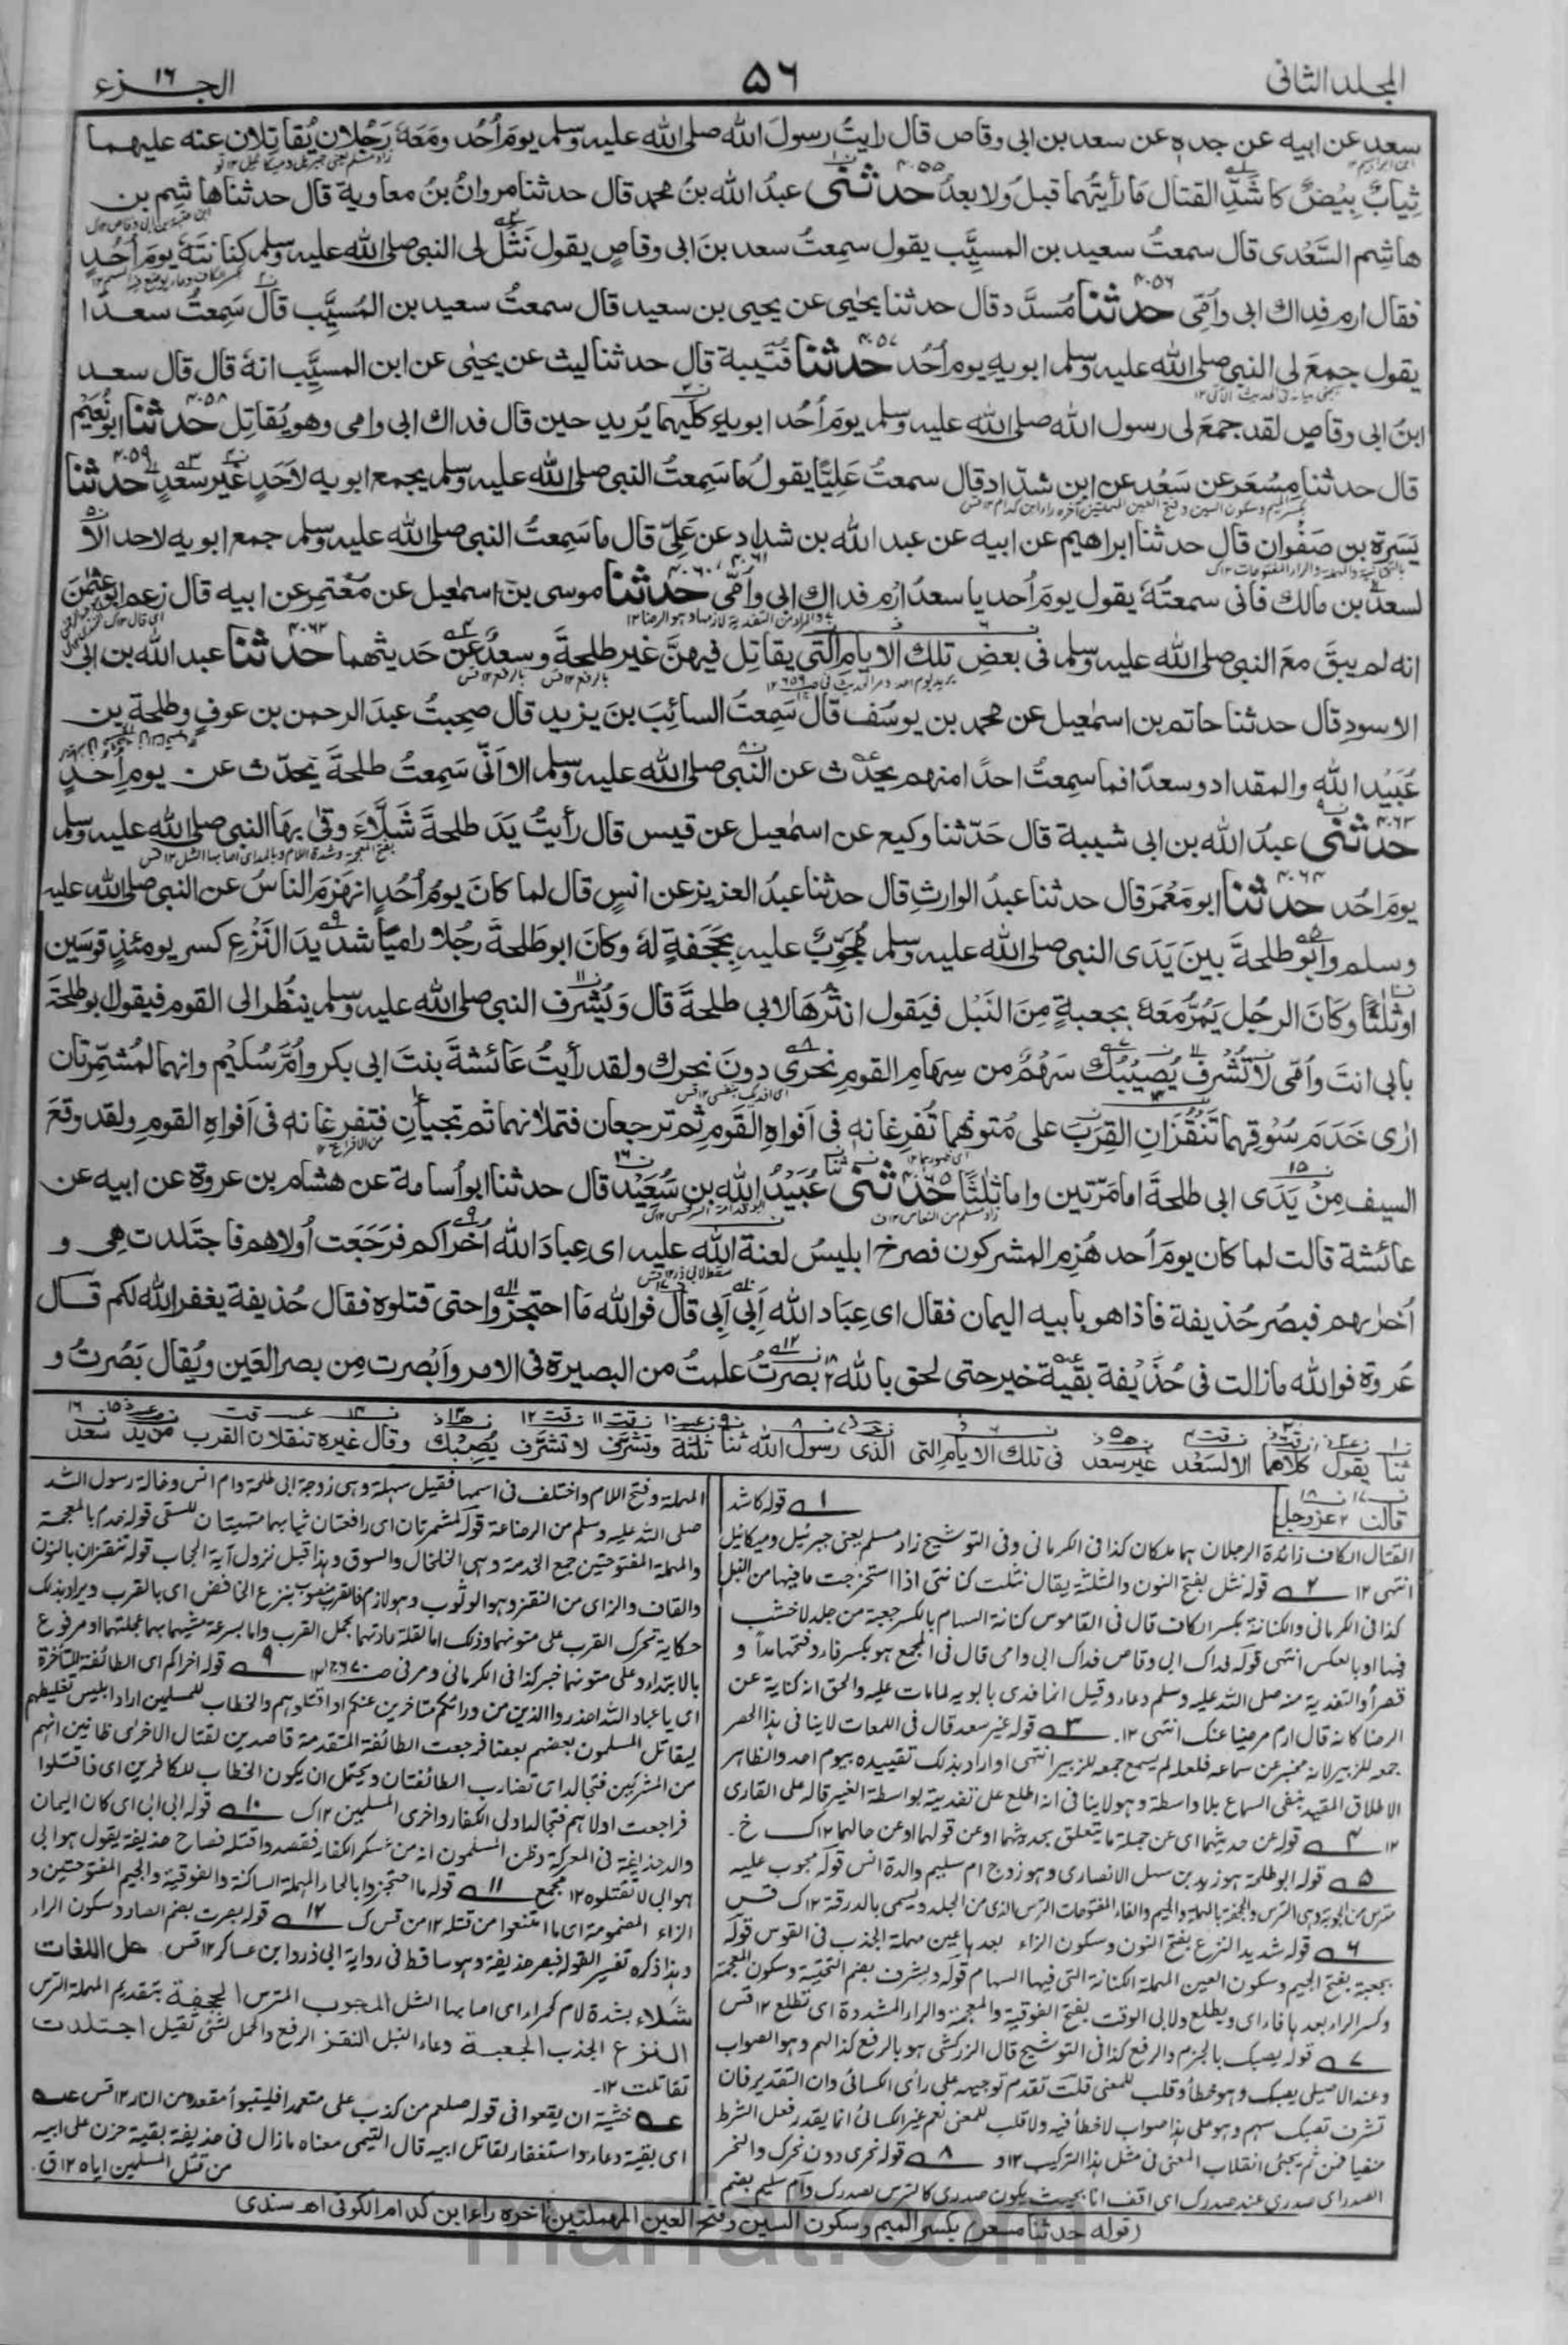 المجلد الثانی
۵٦
الجزء ۱٦
سعد عن ابیه عن جده عن سعد بن ابی وقاص قال رایتُ رسولَ الله صلی الله علیه وسلم یومَ اُحُد ومَعَهٗ رَجُلان یُقاتِلان عنه علیهما
ثِیابٌ بِیْضٌ کاشَدِّ القتال مَا رأیتُهما قبلُ ولا بعدُ حدثنی عبدُ الله بنُ محمد قال حدثنا مروانُ بنُ معاویة قال حدثنا هاشِم بن
هاشِم السَّعْدی قال سمعتُ سعیدَ بن المسیَّب یقول سمِعتُ سعد بنَ ابی وقاصٍ یقول نَثَلَ لی النبی صلی الله علیه وسلم کنانتَهٗ یومَ اُحُدٍ
فقال ارم فِداك ابی واُمّی حدثنا مُسدَّد قال حدثنا یحییٰ عن یحیی بن سعید قال سمعتُ سعید بن المُسیَّب قال سَمِعتُ سعدًا
یقول جمعَ لی النبی صلی الله علیه وسلم ابویهِ یوم اُحُد حدثنا قتَیبة قال حدثنا لیث عن یحیٰی عن ابن المسیَّب انهٗ قال قال سعد
ابنُ ابی وقاصٍ لقد جمعَ لی رسول الله صلی الله علیه وسلم یومَ اُحُد ابویهِ کلَیهما یُرید حین قال فداك ابی وامی وهو یُقاتِل حدثنا ابو نُعَیم
قال حدثنا مِسْعَر عن سَعْد عن ابن شدّاد قال سمعتُ عَلِیًّا یقولُ ما سَمِعتُ النبی صلی الله علیه وسلم یجمع ابویه لاَحَدٍ غیر سعدٍ حدثنا
یَسَرة بن صَفْوان قال حدثنا ابراهیم عن ابیه عن عبد الله بن شداد عن علیّ قال ما سَمِعتُ النبی صلی الله علیه وسلم جمع ابویه لاحد الا
لسعد بن مالك فانی سمعتُهٗ یقول یومَ اُحد یا سعدُ ارْمِ فداك ابی واُمّی حدثنا موسی بن اسمٰعیل عن مُعْتَمِر عن ابیه قال زعم ابو عثمٰن
انه لم یبقَ معَ النبی صلی الله علیه وسلم فی بعضِ تلك الایام التی یقاتِل فیهنَّ غیر طلحةَ وسعدٌ عن حَدیثهما حدثنا عبد الله بن ابی
الاسودِ قال حدثنا حاتم بن اسمٰعیل عن محمد بن یوسُف قال سَمِعتُ السائِبَ بنَ یزید قال صحِبتُ عبدَ الرحمٰن بن عوفٍ وطلحةَ بن
عُبَیْد الله والمقداد وسعدًا فما سمِعتُ احدًا منهم یحدّث عن النبی صلی الله علیه وسلم الا اَنّی سَمِعتُ طلحةَ یحدّث عن یومِ اُحُدٍ
حدثنی عبدُ الله بن ابی شیبة قال حَدّثنا وکیع عن اسمٰعیل عن قیس قال رأیتُ یَدَ طلحةَ شَلّاءَ وقٰی بِهَا النبی صلی الله علیه وسلم
یومَ احُد حدثنا ابو مَعْمَر قال حدثنا عبدُ الوارثِ قال حدثنا عبدُ العزیز عن انسٍ قال لما کانَ یومُ اُحُدٍ انهَزَمَ الناسُ عن النبی صلی الله علیه
وسلم وابو طلحةَ بینَ یَدَی النبی صلی الله علیه وسلم مُجَوِّبٌ علیه بِحَجَفَةٍ لهٗ وکانَ ابو طَلحةَ رجُلا رامیًا شدیدَ النَّزْع کسر یومئذٍ قوسَین
او ثلٰثًا وکَانَ الرجُل یَمُرُّ معَهٗ بجَعبةٍ مِنَ النَبْل فیَقول انثُرهَا لابی طلحةَ قال ویُشْرِف النبی صلی الله علیه وسلم ینظُر الی القوم فیقول ابو طلحَةَ
بابی انتَ واُمّی لا تُشْرِف یُصِیبُكَ سَهْمٌ من سِهامِ القومِ نحْری دونَ نحرِك ولقد رأیتُ عَائشةَ بنتَ ابی بکر واُمَّ سُلیْم وانهما لمُشَمِّرتان
ارٰی خَدَمَ سُوقِهما تَنقُزانِ القِرَبَ علی مُتونِهما تُفرِغانِه فی اَفواهِ القَومِ ثم ترجعان فتملانهما ثم تجیانِ فتفرغانه فی اَفواهِ القومِ ولقد وقعَ
السیف مِنْ یَدَی ابی طلحةَ اما مَرّتین واما ثلٰثًا حدثنی عُبَیْدُ الله بن سَعِیْد قال حدثنا ابو اُسامة عن هشام بن عروة عن ابیه عن
عائشة قالت لما کان یومَ اُحد هُزِم المشرکون فصرخ ابلیسُ لعنة الله علیه ای عِبادَ الله اُخرَاکم فرَجَعَت اُولاهم فاجتَلدت هِی و
اُخرٰیهم فبصُر حُذیفة فاذا هو بابیه الیمان فقال ای عِبَاد الله اَبِی اَبِی قال فوالله مَا احتجزُوا حتی قتلوه فقال حُذیفة یغفر الله لکم قال
عُروة فوالله ما زالت فی حُذَیْفة بقیة خیر حتی لحق بالله بَصُرتُ علمتُ من البصیرة فی الامر واَبْصرت مِن بصر العَین ویُقال بَصُرتُ و
ثنا یقول کلاهما الا لسَعْد غیر سعد فی تلك الایام التی الذی رسول الله ثنا ثلٰثة وتشرَّف لا تشرَّف یُصِبْك وقال غیره تنقلان القرب من ید سعد
قالت عز وجل
۱ قوله کاشد
القتال الکاف زائدة الرجلان هما ملکان کذا فی الکرمانی وفی التوشیح زاد مسلم یعنی جبرئیل ومیکائیل
انتهی ۱۲ ۲ قوله نثل بفتح النون والمثلثة یقال نثلت کنانتی اذا استخرجت ما فیها من النبل
کذا فی الکرمانی والکنانة بکسر الکاف قال فی القاموس کنانة السهام بالکسر جعبة من جلد لا خشب
فیها او بالعکس انتهی قوله فداك ابی وقاص فداك ابی وامی قال فی المجمع هو بکسر فاء وفتحها مدا و
قصرا والتفدیة منه صلی الله علیه وسلم دعاء وقیل انما فدی بابویه لما مات علیه والحق انه کنایة عن
الرضا کانه قال ارم مرضیا عنك انتهی ۱۲. ۳ قوله غیر سعد قال فی اللمعات لا ینافی هذا الحصر
جمعه للزبیر لانه مخبر عن سماعه فلعله لم یسمع جمعه للزبیر انتهی او اراد بذلك تقییده بیوم احد والظاهر
الاطلاق المقید بنفی السماع بلا واسطة وهو لا ینافی انه اطلع علی تفدیته بواسطة الغیر قاله علی القاری
۱۲ ۴ قوله عن حدیثهما ای عن جملة ما یتعلق بحدیثهما او عن قولهما او عن حالهما ۱۲ك خ.
۵ قوله ابو طلحة هو زید بن سهل الانصاری وهو زوج ام سلیم والدة انس قوله مجوب علیه
مترس من الجوبة وهی الترس والحجفة بالمهملة والجیم والفاء المفتوحات الترس الذی من الجلد ویسمی بالدرقة ۱۲ك قس
٦ قوله شدید النزع بفتح النون وسکون الزاء بعدها عین مهملة الجذب فی القوس قوله
بجعبة بفتح الجیم وسکون العین المهملة الکنانة التی فیها السهام قوله ویشرف بضم التحتیة وسکون المعجمة
وکسر الراء بعدها فاء ای ویطلع ولابی الوقت بفتح الفوقیة والمعجمة والراء المشددة ای تطلع ۱۲ قس
۷ قوله یصبك بالجزم والرفع کذا فی التوشیح قال الزرکشی هو بالرفع کذا لهم وهو الصواب
وعند الاصیلی یصبك وهو خطأ وقلب للمعنی قلت تقدم توجیهه علی رأی الکسائی وان التقدیر فان
تشرف تصبك سهم وهو علی هذا صواب لا خطأ فیه ولا قلب للمعنی نعم غیر الکسائی انما یقدر فعل الشرط
منفیا فمن ثم یجئی انقلاب المعنی فی مثل هذا الترکیب ۱۲و ۸ قوله نحری دون نحرك والنحر
الصدر ای صدری عند صدرك ای اقف انا بحیث یکون صدری کالترس لصدرك وام سلیم بضم
المهملة وفتح اللام واختلف فی اسمها فقیل سهلة وهی زوجة ابی طلحة وام انس وخالة رسول الله
صلی الله علیه وسلم من الرضاعة قوله لمشمرتان ای رافعتان ثیابهما متهیئتان للسقی قوله خدم بالمعجمة
والمهملة المفتوحتین جمع الخدمة وهی الخلخال والسوق وهذا قبل نزول آیة الحجاب قوله تنقزان بالنون
والقاف والزای من النقز وهو الوثوب وهو لازم فالقرب منصوب بنزع الخافض ای بالقرب ویراد بذلك
حکایة تحرك القرب علی متونهما وذلك اما لقلة عادتهما بحمل القرب واما بسرعة مشیهما بهما عجلتهما او مرفوع
بالابتداء وعلی متونهما خبر کذا فی الکرمانی ومر فی ص۶۷۰ج۱ ۱۲ ۹ قوله اخراکم ای الطائفة المتأخرة
ای یا عباد الله احذروا الذین من ورائکم متاخرین عنکم او اقتلوهم والخطاب للمسلمین اراد ابلیس تغلیطهم
لیقاتل المسلمون بعضهم بعضا فرجعت الطائفة المتقدمة قاصدین لقتال الاخری ظانین انهم
من المشرکین فتجالد ای تضارب الطائفتان ویحتمل ان یکون الخطاب للکافرین ای فاقتلوا
فراجعت اولاهم فتجالد اولی الکفار واخری المسلمین ۱۲ك ۱۰ قوله ابی ابی ای کان الیمان
والد حذیفة فی المعرکة وظن المسلمون انه من عسکر الکفار فقصدوا قتله فصاح حذیفة یقول هو ابی
هو ابی لا تقتلوه ۱۲ مجمع ۱۱ قوله ما احتجزوا بالحاء المهملة الساکنة والفوقیة والجیم المفتوحتین و
الزاء المضمومة ای ما امتنعوا من قتله ۱۲ من قس ك ۱۲ قوله بصرت بضم الصاد وسکون الراء
وهذا ذکره تفسیر القوله فبصر حذیفة وهو ساقط فی روایة ابی ذر وابن عساکر ۱۲ قس. حل اللغات
شلاء بشدة لام کحمراء ای اصابها الشل المجوب المترس الحجفة بتقدیم المهملة الترس
النزع الجذب الجعبة وعاء النبل النقز الرفع والحمل لشئی ثقیل اجتلدت
تقاتلت ۱۲.
عــه خشیة ان یقعوا فی قوله صلعم من کذب علی متعمدا فلیتبوأ مقعده من النار ۱۲ قس عــه
ای بقیة دعاء واستغفار لقاتل ابیه قال التیمی معناه ما زال فی حذیفة بقیة حزن علی ابیه
من قتل المسلمین ایاه ۱۲ ق.
(قوله حدثنا مسعر) بکسر المیم وسکون السین وفتح العین المهملتین آخره راء ابن کدام الکوفی اهـ سندی
marfat.com